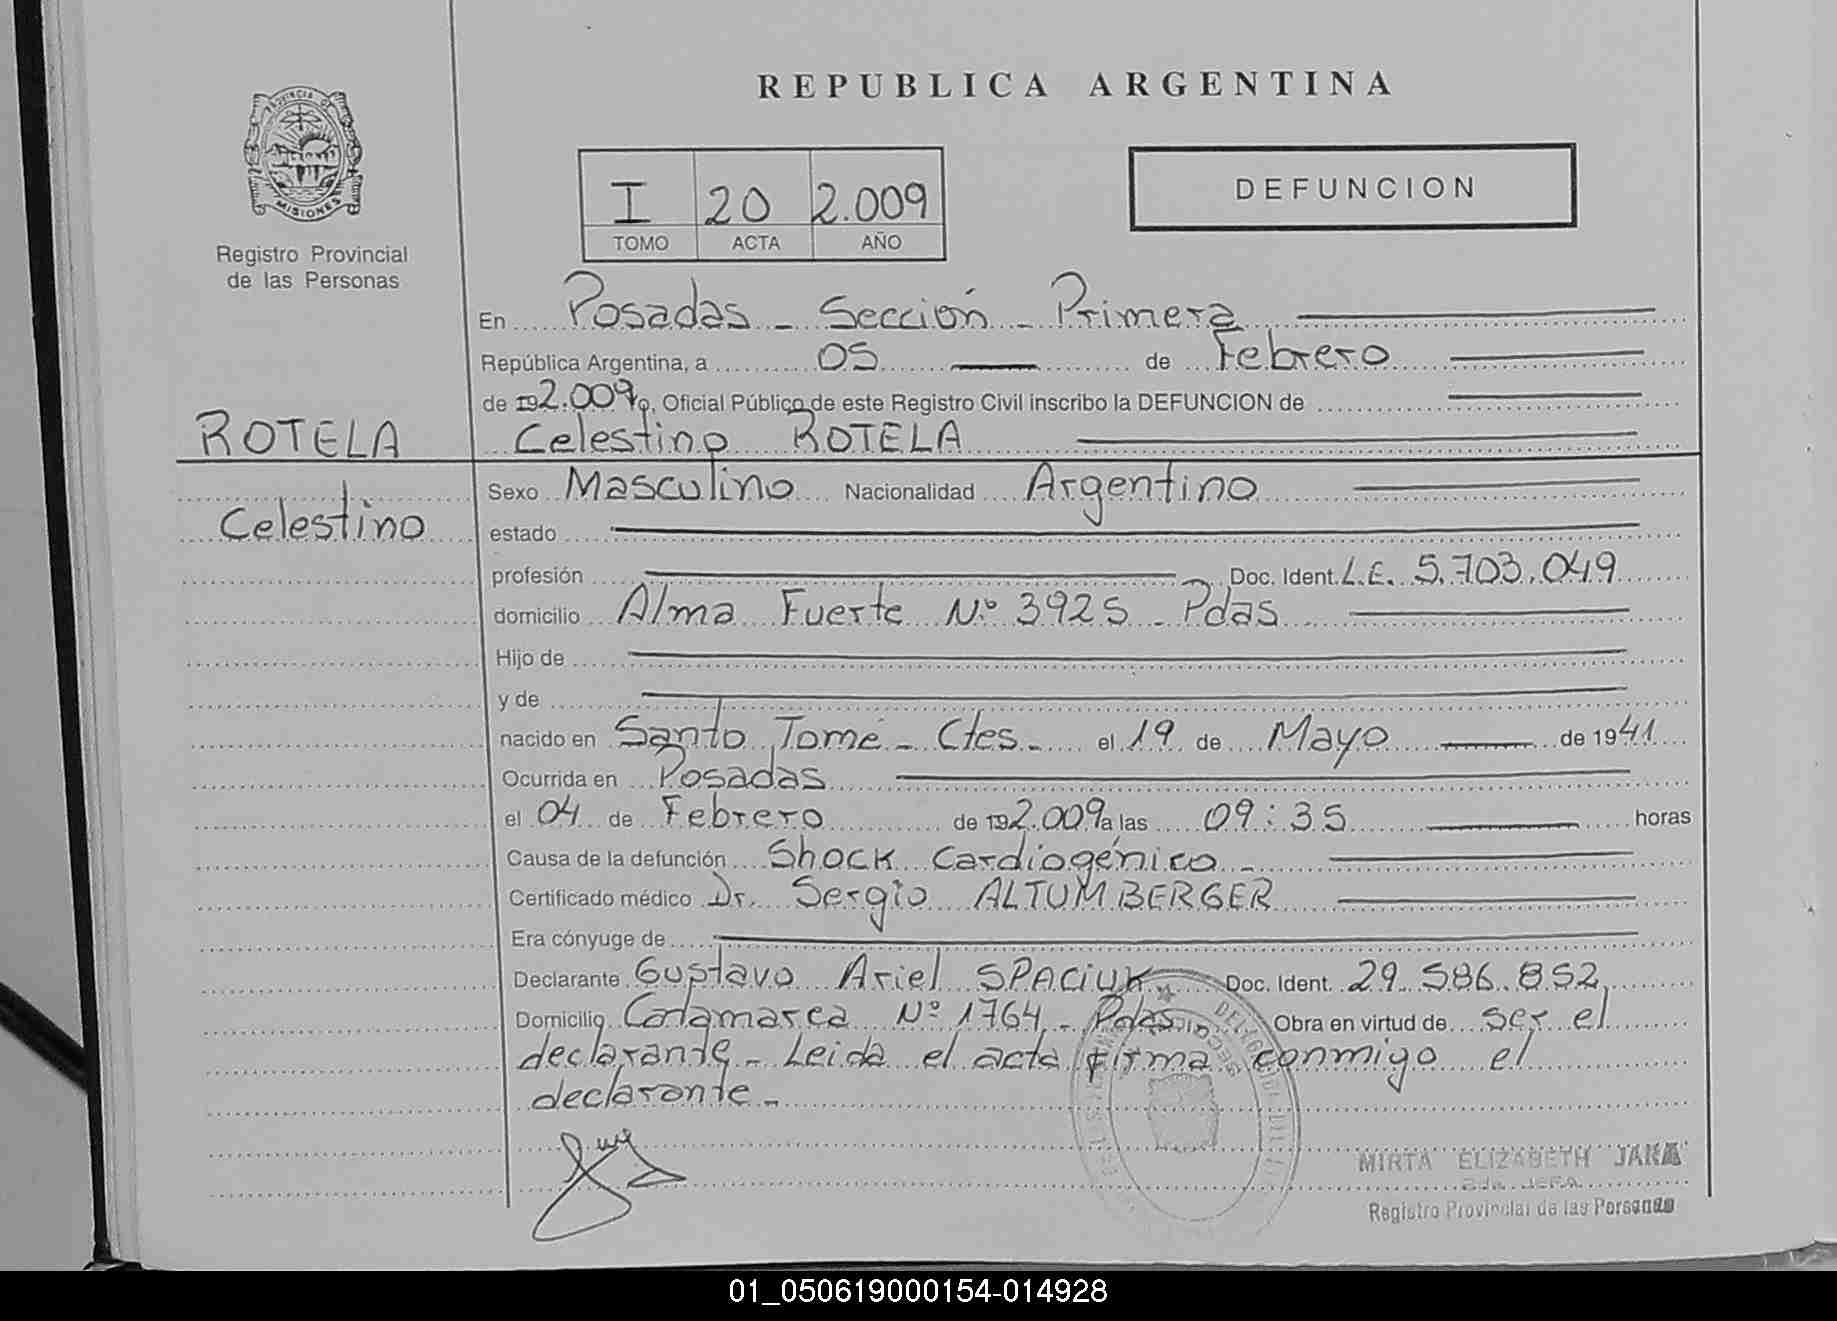 REPUBLICA ARGENTINA
PROVINCIA DE
MISIONES
Registro Provincial
de las Personas
I 20 2.009
TOMO ACTA AÑO
DEFUNCION
En Posadas - Sección - Primera
República Argentina, a 05 de Febrero
de 192.009 yo, Oficial Público de este Registro Civil inscribo la DEFUNCION de
ROTELA
Celestino ROTELA
Celestino
Sexo Masculino Nacionalidad Argentino
estado
profesión Doc. Ident. L.E. 5.703.049
domicilio Alma Fuerte Nº 3925 - Pdas
Hijo de
y de
nacido en Santo Tomé - Ctes. el 19 de Mayo de 1941
Ocurrida en Posadas
el 04 de Febrero de 192.009 a las 09:35 horas
Causa de la defunción Shock Cardiogénico -
Certificado médico Dr. Sergio ALTUMBERGER
Era cónyuge de
Declarante Gustavo Ariel SPACIUK Doc. Ident. 29.586.852
Domicilio Catamarca Nº 1764 - Pdas Obra en virtud de ser el
declarante - Leida el acta firma conmigo el
declarante -
MIRTA ELIZABETH JARA
2da. JEFA
Registro Provincial de las Personas
01_050619000154-014928